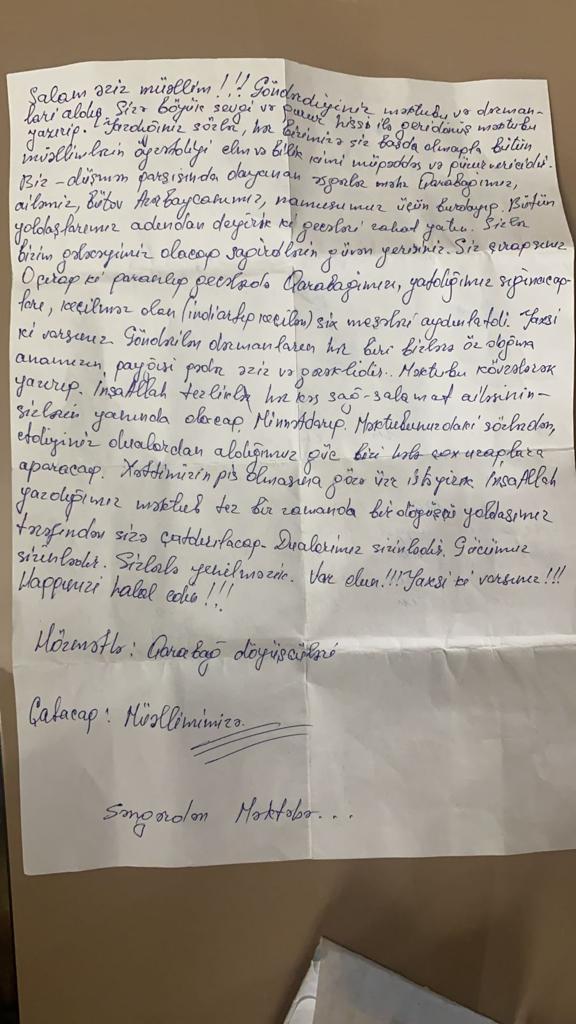 Salam əziz müəllim!!! Göndərdiyiniz məktubu və dərman-
ları aldıq. Sizə böyük sevgi və qürur hissi ilə geridönüş məktubu
yazırıq. Yazdığınız sözlər, hər birimizə siz başda olmaqla bütün
müəllimlərin öyrətdiyi elm və bilik kimi müqəddəs və qürurvericidir.
Biz - düşmən qarşısında dayanan əsgərlər məhz Qarabağımız,
ailəmiz, Bütöv Azərbaycanımız, namusumuz üçün burdayıq. Bütün
yoldaşlarımız adından deyirik ki gecələri rahat yatın. Sizlər
bizim gələcəyimiz olacaq şagirdlərin güvən yerisiniz. Siz çıraqsınız
O çıraq ki qaranlıq gecələrdə Qarabağımızı, yatdığımız sığınacaq-
ları, keçilməz olan (indi artıq keçilən) sıx meşələri aydınlatdı. Yaxşi
ki varsınız. Göndərilən dərmanların hər biri bizlərə öz doğma
anamızın, payğısı qədər əziz və gərəklidir. Məktubu kövrələrək
yazırıq. İnşAllah tezliklə hər kəs sağ-salamat ailəsinin-
sizlərin yanında olacaq. Minnətdarıq. Məktubunuzdaki sözlərdən,
etdiyiniz dualardan aldığımız güc bizi hələ çox uzaqlara
aparacaq. Xəttimizin pis olmasına görə üzr istəyirik İnşAllah
yazdığımız məktub tez bir zamanda bir döyüşçü yoldaşımız
tərəfindən sizə çatdırılacaq. Dualarımız sizinlədir. Gücümüz
sizinlədir. Sizlərlə yenilmərik. Var olun!!! Yaxşi ki varsınız!!!
Haqqınızı halal edin!!!
Hörmətlə: Qarabağ döyüşçüləri
Çatacaq: Müəllimimizə.
Səngərdən Məktəbə...